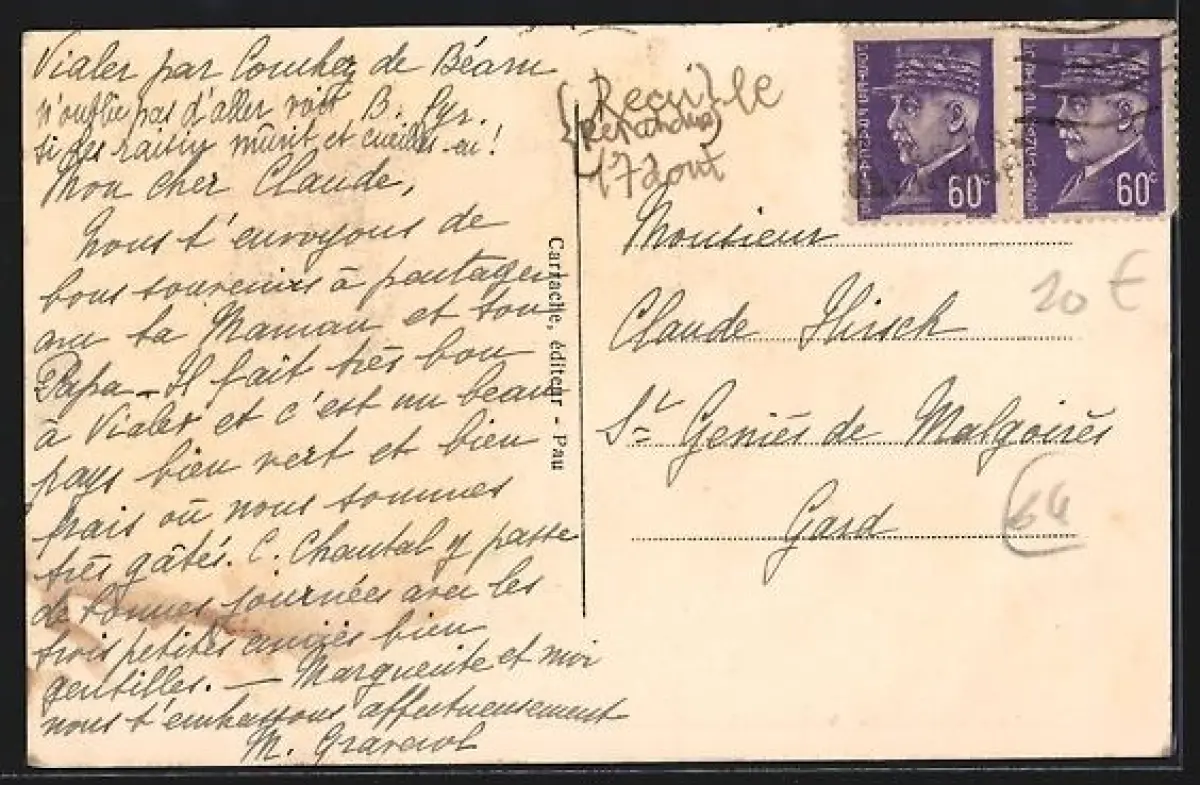 Vialer par Conchez de Béarn
n'oublie pas d'aller voir B. Pyr.
si ses raisin mûrit et cueilles-en!
Mon cher Claude,
Nous t'envoyons de
bons souvenirs à partager
avec ta Maman et ton
Papa - Il fait très bon
à Vialer et c'est un beau
pays bien vert et bien
frais où nous sommes
très gâtés. C. Chantal y passe
de bonnes journées avec les
trois petites amies bien
gentilles. — Marguerite et moi
nous t'embrassons affectueusement
M.
Carrache, éditeur - Pau
(Reçu) le
17 août
60c
60c
Monsieur
Claude Hirsch
St Geniès de Malgoirès
Gard
10 €
64